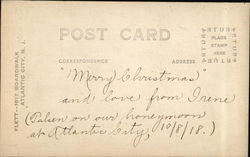 POST CARD
CORRESPONDENCE
ADDRESS
PLACE
STAMP
HERE
ARTURA
ARTURA
FLETT--1617 BOARDWALK
ATLANTIC CITY, N. J.
"Merry Christmas"
and love from Irene
(Taken on our honeymoon
at Atlantic City, 10/8/18.)